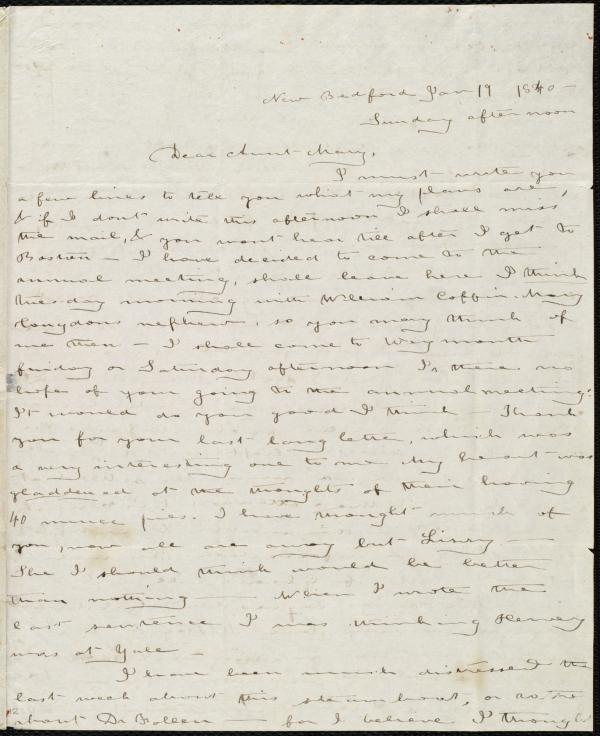 New Bedford Jan 19 1840 -
Sunday afternoon
Dear Aunt Mary,
I must write you
a few lines to tell you what my plans are,
& if I dont write this afternoon I shall miss
the mail, & you wont hear till after I get to
Boston - I have decided to come to the
annual meeting, shall leave here I think
tuesday morning with William Coffin. Mary
Congdons nephew, so you may think of
me then - I shall come to Weymouth
friday or Saturday afternoon Is there no
hope of your going to the annual meeting?
It would do you good I think - Thank
you for your last long letter, which was
a very interesting one to me My heart was
gladdened at the thoughts of their having
40 mince pies. I have thought much of
you, now all are away but Lizzy -
She I should think would be better
than nothing - When I wrote the
last sentence I was thinking Hervey
was at Yale -
I have been much distressed the
last week about this steam boat, or rather
about Dr Follen - for I believe I thought